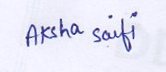 Aksha saifi